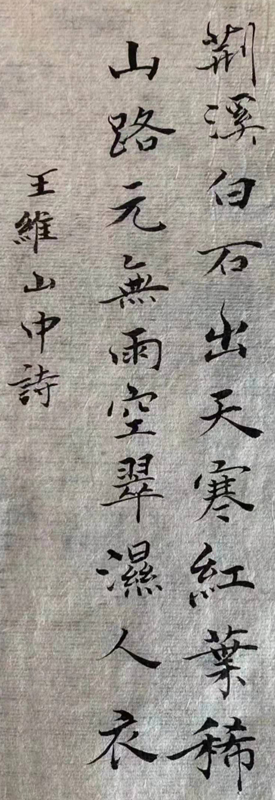 荆溪白石出天寒紅葉稀
山路元無雨空翠濕人衣
王維山中詩